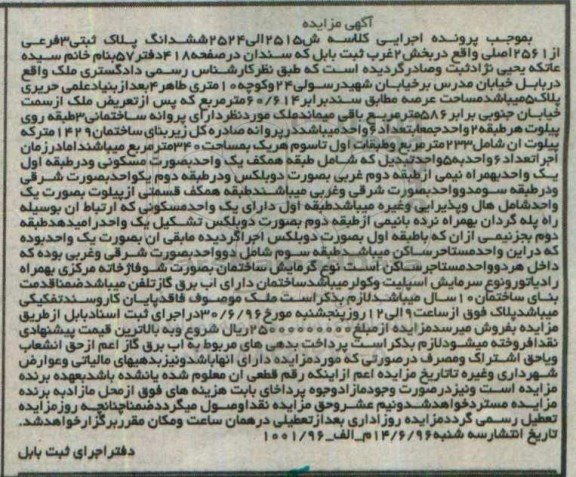 آگهی مزایده
بموجب پرونده اجرایی کلاسه ش2515الی2524ششدانگ پلاک ثبتی3فرعی
از2561اصلی واقع دربخش2غرب ثبت بابل که سندان درصفحه418دفتر57بنام خانم سیده
عاتکه یحیی نژادثبت وصادرگردیده است که طبق نظرکارشناس رسمی دادگستری ملک واقع
دربابل خیابان مدرس برخیابان شهیدرسولی24وکوچه10متری طاهر4بعدازبنیادعلمی حریری
پلاک5میباشدمساحت عرصه مطابق سندبرابر60/614مترمربع که پس ازتعریض ملک ازسمت
خیابان جنوبی برابر586مترمربع باقی میماندملک موردنظردارای پروانه ساختمانی3طبقه روی
پیلوت هرطبقه2واحدجمعابتعداد6واحدمیباشددرپروانه صادره کل زیربنای ساختمان1429مترکه
پیلوت ان شامل233مترمربع وطبقات اول تاسوم هریک بمساحت340مترمربع میباشدامادرزمان
اجراتعداد6واحدبه5واحدتبدیل که شامل طبقه همکف یک واحدبصورت مسکونی ودرطبقه اول
یک واحدبهمراه نیمی ازطبقه دوم غربی بصورت دوبلکس ودرطبقه دوم یکواحدبصورت شرقی
ودرطبقه سومدوواحدبصورت شرقی وغربی میباشندطبقه همکف قسمتی ازپیلوت بصورت یک
واحدشامل هال وپذیرایی وغیره میباشدطبقه اول دارای یک واحدمسکونی که ارتباط ان بوسیله
راه پله گردان بهمراه نرده بانیمی ازطبقه دوم بصورت دوبلکس تشکیل یک واحدرامیدهدطبقه
دوم بجزنیمی ازان که باطبقه اول بصورت دوبلکس اجراگردیده مابقی ان بصورت یک واحدبوده
که دراین واحدمستاجرساکن میباشدطبقه سوم شامل دوواحدبصورت شرقی وغربی بوده که
داخل هردوواحدمستاجرساکن است نوع گرمایش ساختمان بصورت شوفاژخانه مرکزی بهمراه
رادیاتورونوع سرمایش اسپلیت وکولرمیباشدساختمان دارای اب برق گازتلفن میباشدضمناقدمت
بنای ساختمان10سال میباشدلازم بذکراست ملک موصوف فاقدپایان کاروسندتفکیکی
میباشدپلاک فوق ازساعت9الی12روزپنجشنبه مورخ30/6/96دراجرای ثبت اسنادبابل ازطریق
مزایده بفروش میرسدمزایده ازمبلغ25000000000ریال شروع وبه بالاترین قیمت پیشنهادی
نقدافروخته میشودلازم بذکراست پرداخت بدهی های مربوط به اب برق گاز اعم ازحق انشعاب
ویاحق اشتراک ومصرف درصورتی که موردمزایده دارای انهاباشدونیزبدهیهای مالیاتی وعوارض
شهرداری وغیره تاتاریخ مزایده اعم ازاینکه رقم قطعی ان معلوم شده یانشده باشدبعهده برنده
مزایده است ونیزدرصورت وجودمازادوجوه پرداخای بابت هزینه های فوق ازمحل مازادبه برنده
مزایده مستردخواهدشدونیم عشروحق مزایده نقداوصول میگرددضمناچنانچه روزمزایده
تعطیل رسمی گرددمزایده روزاداری بعدازتعطیلی درهمان ساعت ومکان مقرربرگزارخواهدشد.
تاریخ انتشارسه شنبه14/6/96م_الف_1001/96
دفتراجرای ثبت بابل